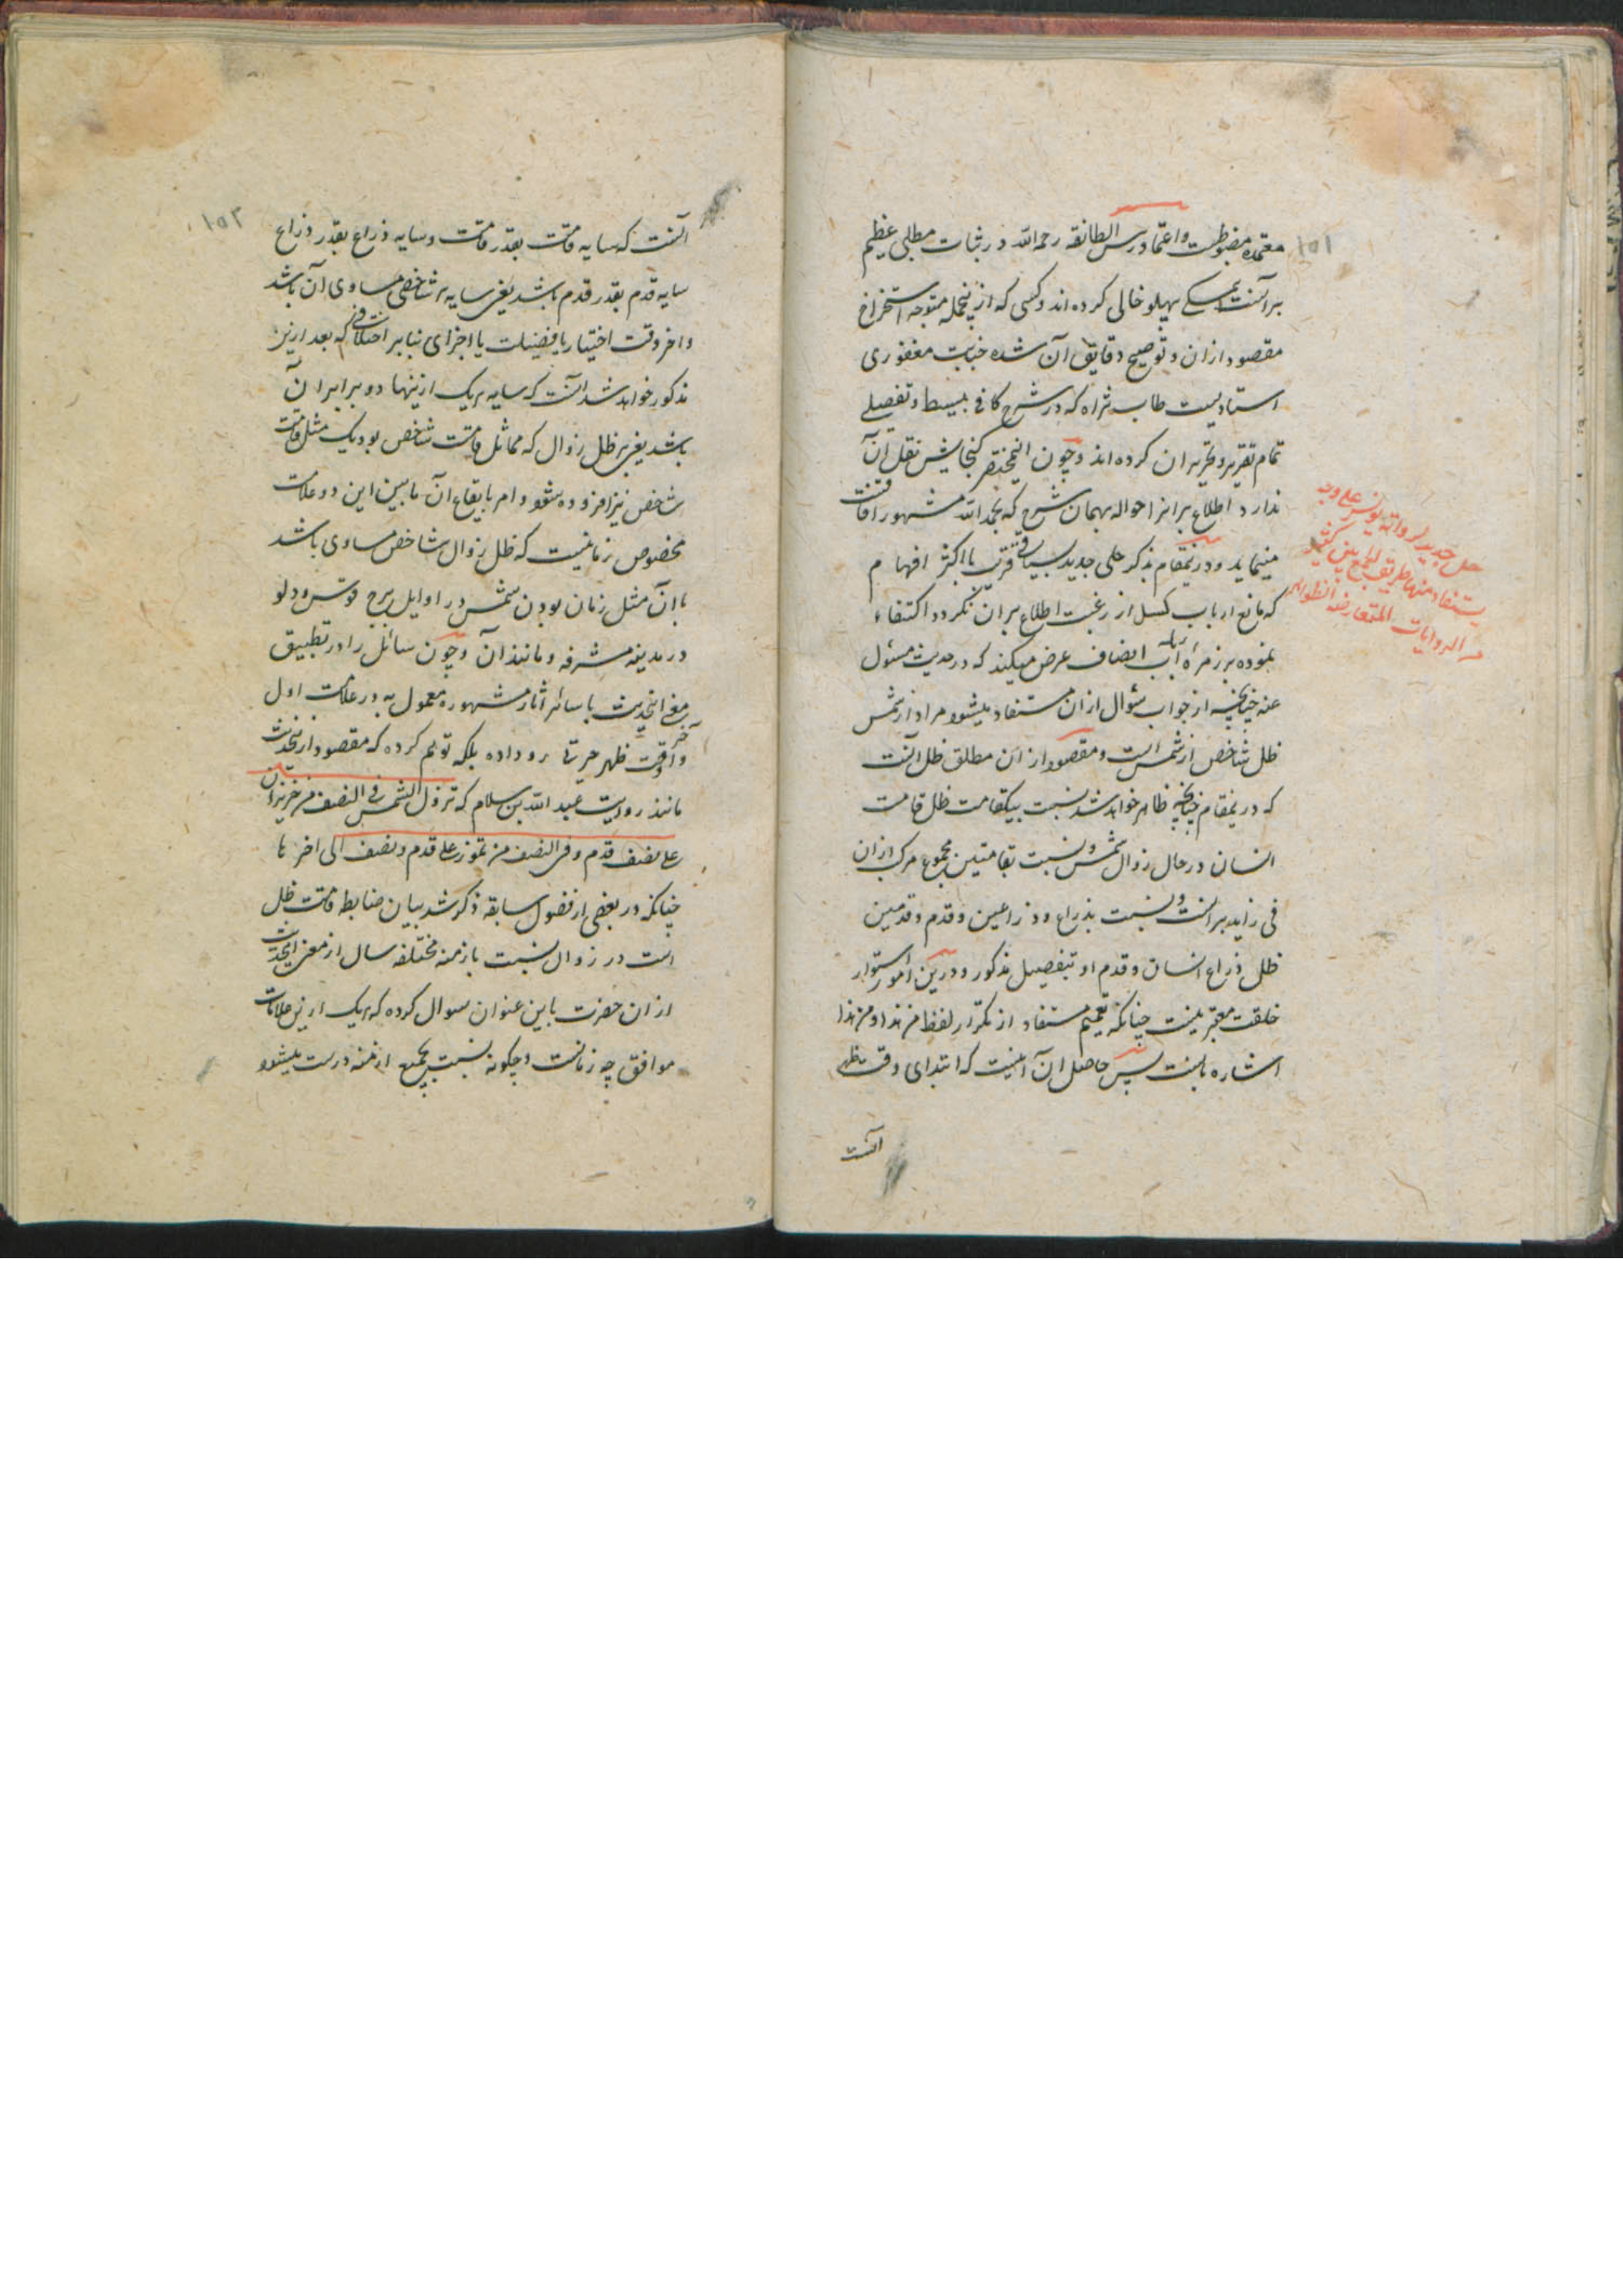 ۱۵۱
معتمده مضبوطست و اعتماد رئیس الطائفه رحمه الله در اثبات مطلبی عظیم
بر آنست پهلو خالی کرده‌اند و کسی که ازینجمله متوجه استخراج
مقصود ازان و توضیح دقایق آن شده جناب مغفوری
استادیست طاب ثراه که در شرح کافی ببسط و تفصیلی
تمام تقریر و تحریر ان کرده‌اند و چون اینمختصر گنجایش نقل آن
ندارد اطلاع بر انرا حواله بهمان شرح که بحمد الله مشهور آفاقست
مینماید و درینمقام بذکر حلی جدید بسیاقی قریب با اکثر افهام
که مانع ارباب کسل از رغبت اطلاع بر ان نگردد اکتفاء
نموده بر زمره ارباب انصاف عرض میکند که در حدیث مسئول
عنه چنانچه از جواب سؤال ازان مستفاد میشود مراد از شمس
ظل شاخص از شمس است و مقصود از ان مطلق ظل آنست
که درینمقام چنانچه ظاهر خواهد شد نسبت بیکقامت ظل قامت
انسان در حال زوال شمس و نسبت بقامتین مجموع مرکب ازان
فی زاید بر انست و نسبت بذراع و ذراعین و قدم و قدمین
ظل ذراع انسان و قدم او بتفصیل مذکور و درین امور استوار
خلقت معتبر نیست چنانکه تعمیم مستفاد از تکرار لفظ من هذا و من هذا
اشاره بانست پس حاصل ان آنست که ابتدای وقت ظهر
آنست
حل جدید لروایة یونس علی وجه
یستفاد منها طریق الجمع بین کثیر
من الروایات المتعارضة الظواهر
۱۵۲
آنست که سایه قامت بقدر قامت و سایه ذراع بقدر ذراع
سایه قدم بقدر قدم باشد یعنی سایه هر شاخصی مساوی آن باشد
و اخر وقت اختیار یا فضیلت یا اجزای بنابر اختلافی که بعد ازین
مذکور خواهد شد آنست که سایه هریک ازینها دو برابر آن
باشد یعنی بر ظل زوال که مماثل قامت شاخص بود یک مثل قامت
شاخص نیز افزوده شود و امر بایقاع آن مابین این دو علامت
مخصوص زمانیست که ظل زوال شاخص مساوی باشد
با آن مثل زمان بودن شمس در اوایل برج قوس و دلو
در مدینه مشرفه و مانند آن و چون سائل را در تطبیق
معنی اینحدیث با سائر آثار مشهوره معمول به در علامت اول
و آخر وقت ظهر حیرتی رو داده بلکه توهم کرده که مقصود از اینحدیث
مانند روایت عبد الله بن سلام که تزول الشمس فی النصف من حزیران
علی نصف قدم و فی النصف من تموز علی قدم و نصف الی اخرها
چنانکه در بعضی از فصول سابقه ذکر شد بیان ضابط قامت ظل
است در زوال نسبت بازمنه مختلفه سال از معنی اینحدیث
ازان حضرت باین عنوان سوال کرده که هریک ازین علامات
موافق چه زمانست و چگونه نسبت بجمیع ازمنه درست میشود